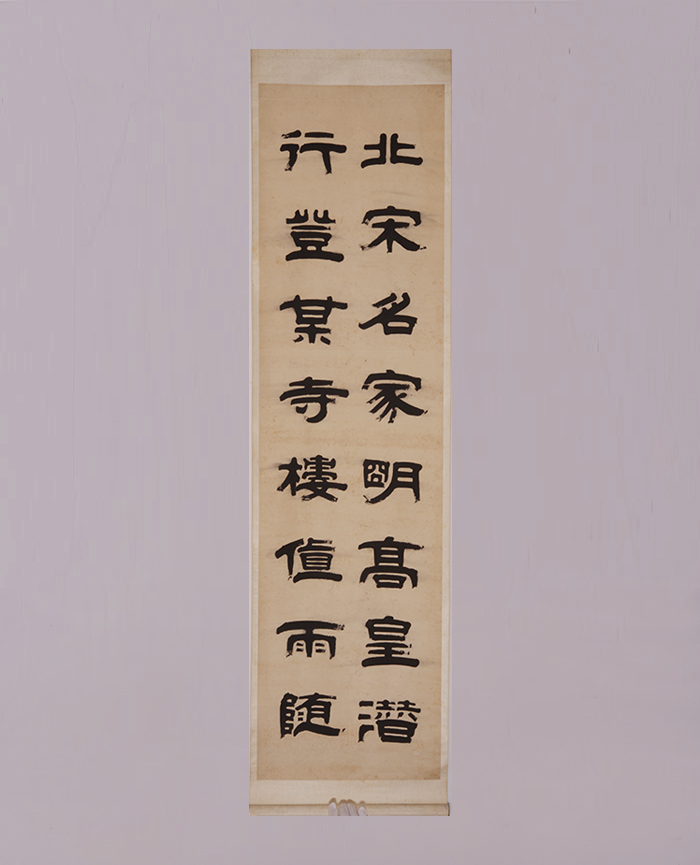 北宋名家朙高皇潛
行登某寺樓值雨随